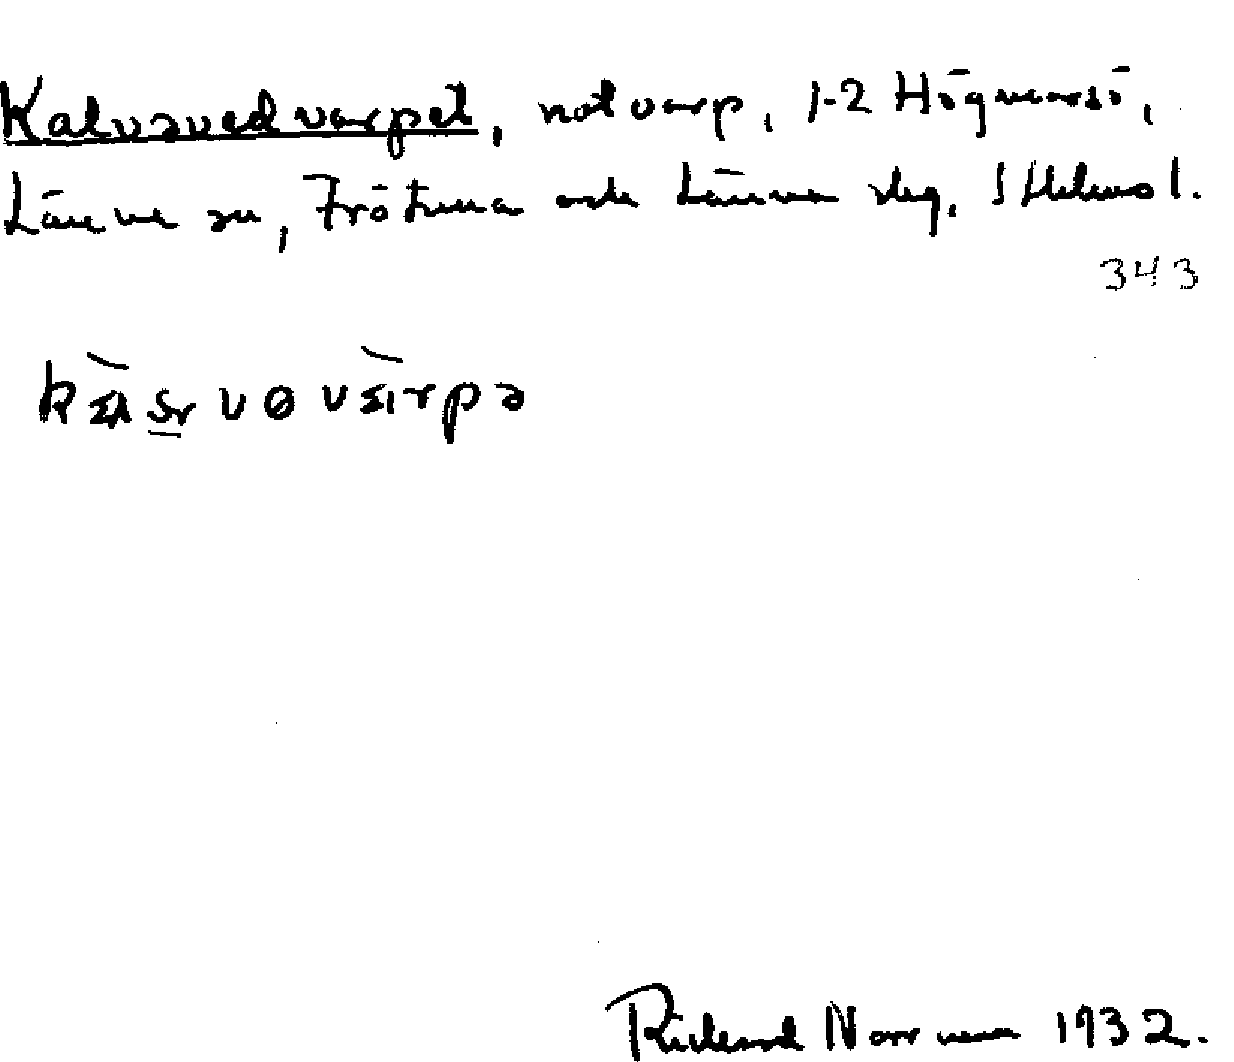 Kalvsvedvarpet, notvarp, 1-2 Högmarsö,
Länna sn, Frötuna och Länna slg, Sthlms l.
343
Rickard Norrman 1932.